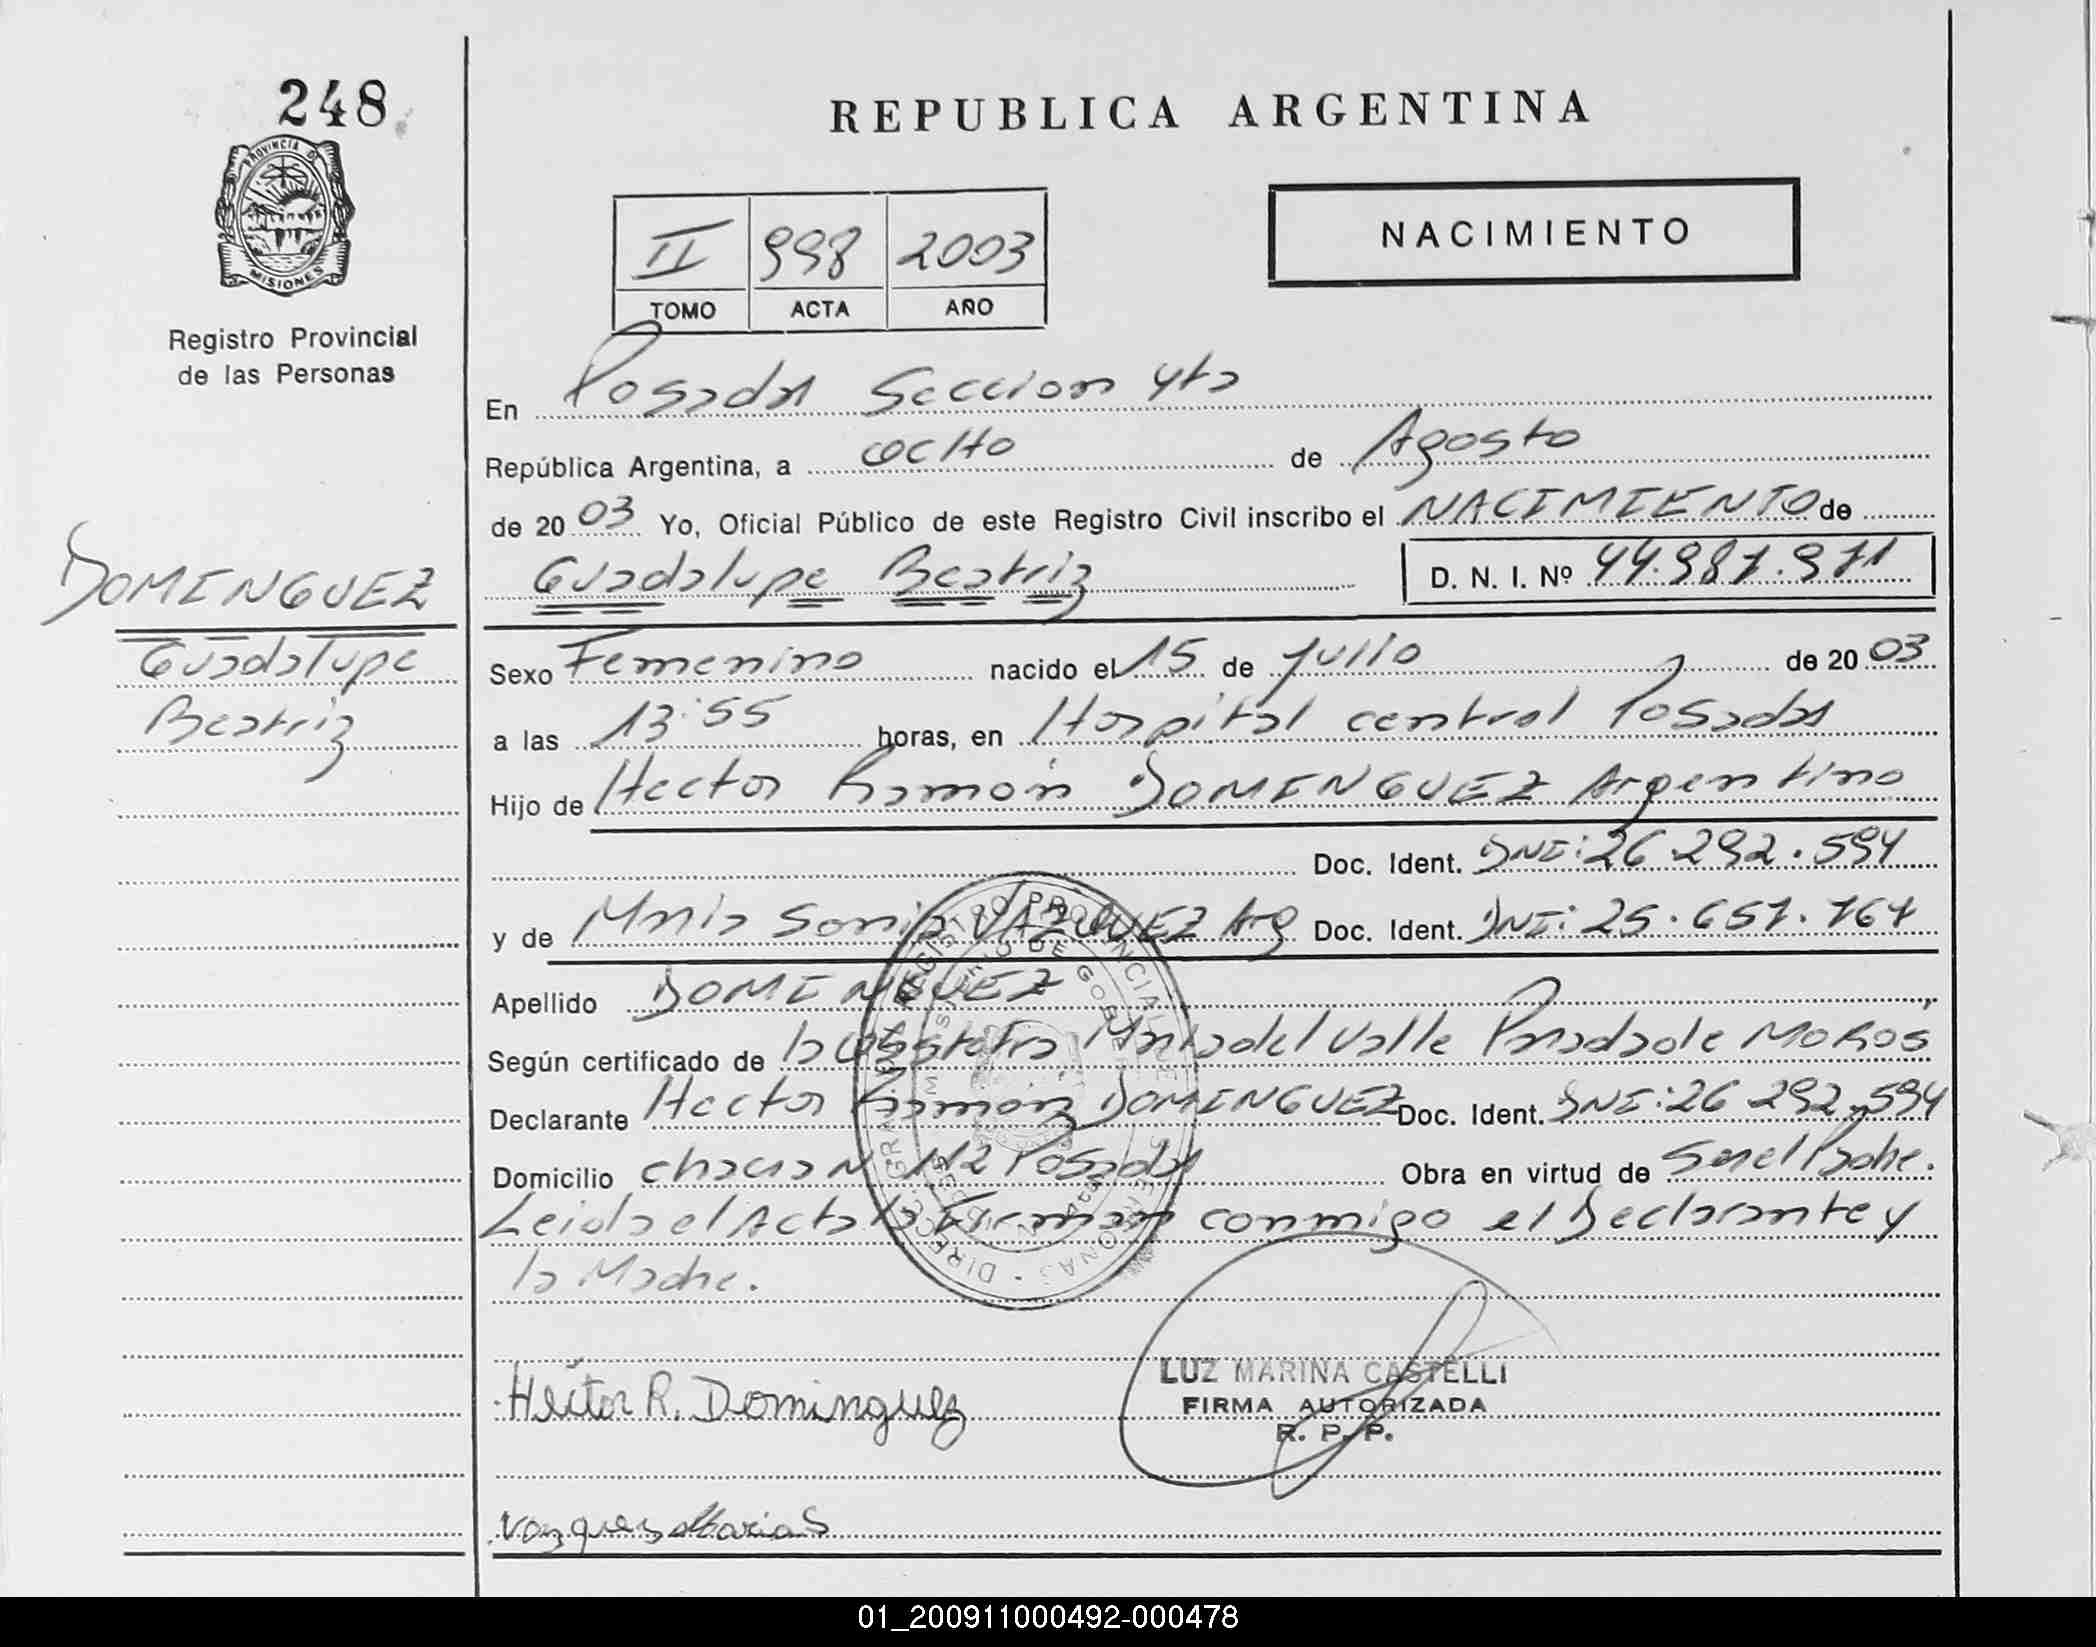 248
PROVINCIA D
MISIONES
Registro Provincial
de las Personas
REPUBLICA ARGENTINA
NACIMIENTO
II 998 2003
TOMO ACTA AÑO
En Posadas Seccion 4ta
República Argentina, a ocho de Agosto
de 20 03 Yo, Oficial Público de este Registro Civil inscribo el NACIMIENTO de
Guadalupe Beatriz D. N. I. Nº 44.987.971
DOMINGUEZ
Guadalupe
Beatriz
Sexo Femenino nacido el 15 de Julio de 20 03
a las 13:55 horas, en Hospital central Posadas
Hijo de Hector Ramón DOMINGUEZ Argentino
Doc. Ident. DNI: 26.292.594
y de Maria Sonia VAZQUEZ Arg Doc. Ident. DNI: 25.657.767
Apellido DOMINGUEZ
Según certificado de la Obstetra Maria del Valle Parada de MOROS
Declarante Hector Ramón DOMINGUEZ Doc. Ident. DNI: 26 292.594
Domicilio chacra N 112 Posadas Obra en virtud de Ser el Padre.
Leida el Acta la Firman conmigo el Declarante y
la Madre.
Héctor R. Dominguez
LUZ MARINA CASTELLI
FIRMA AUTORIZADA
R. P. P.
Vazques Maria S
01_200911000492-000478